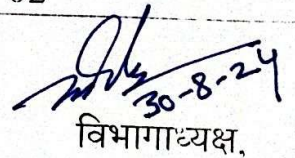 30-8-24
विभागाध्यक्ष,